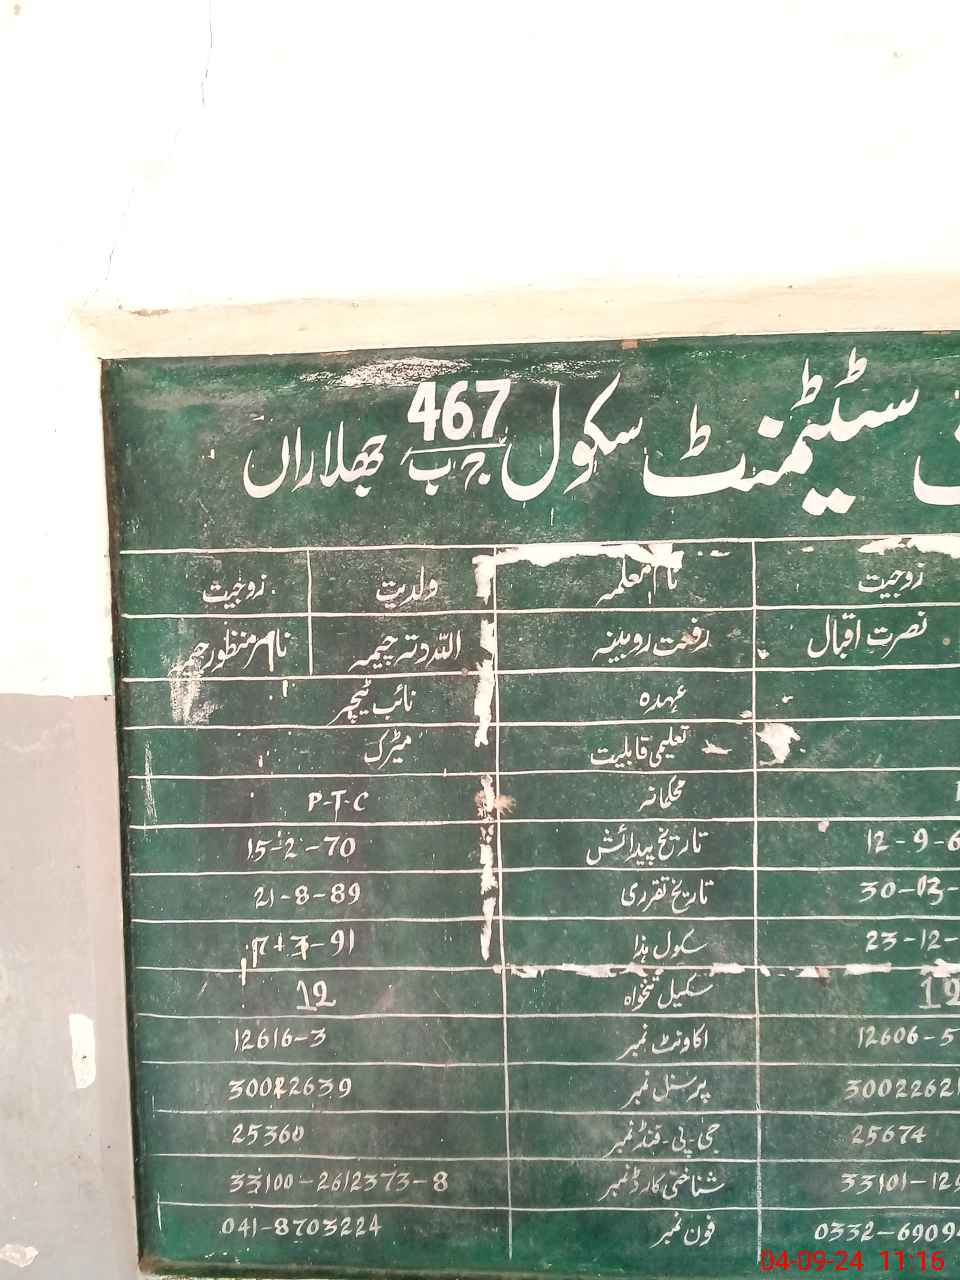 سٹیٹمنٹ سکول 467 ج ب جھلاراں
زوجیت نام معلمہ ولدیت زوجیت
نصرت اقبال رفعت روبینہ اللہ دتہ چیمہ ناصر منظور چیمہ
عہدہ نائب ٹیچر
تعلیمی قابلیت میٹرک
محکمانہ P-T-C
12-9-6 تاریخ پیدائش 15-2-70
30-03- تاریخ تقرری 21-8-89
23-12- سکول ہذا 17-3-91
12 سکیل تنخواہ 12
12606-5 اکاونٹ نمبر 12616-3
3002262 پرسنل نمبر 30022639
25674 جی-پی-فنڈ نمبر 25360
33101-12 شناختی کارڈ نمبر 33100-2612373-8
0332-6909 فون نمبر 041-8703224
04-09-24 11:16